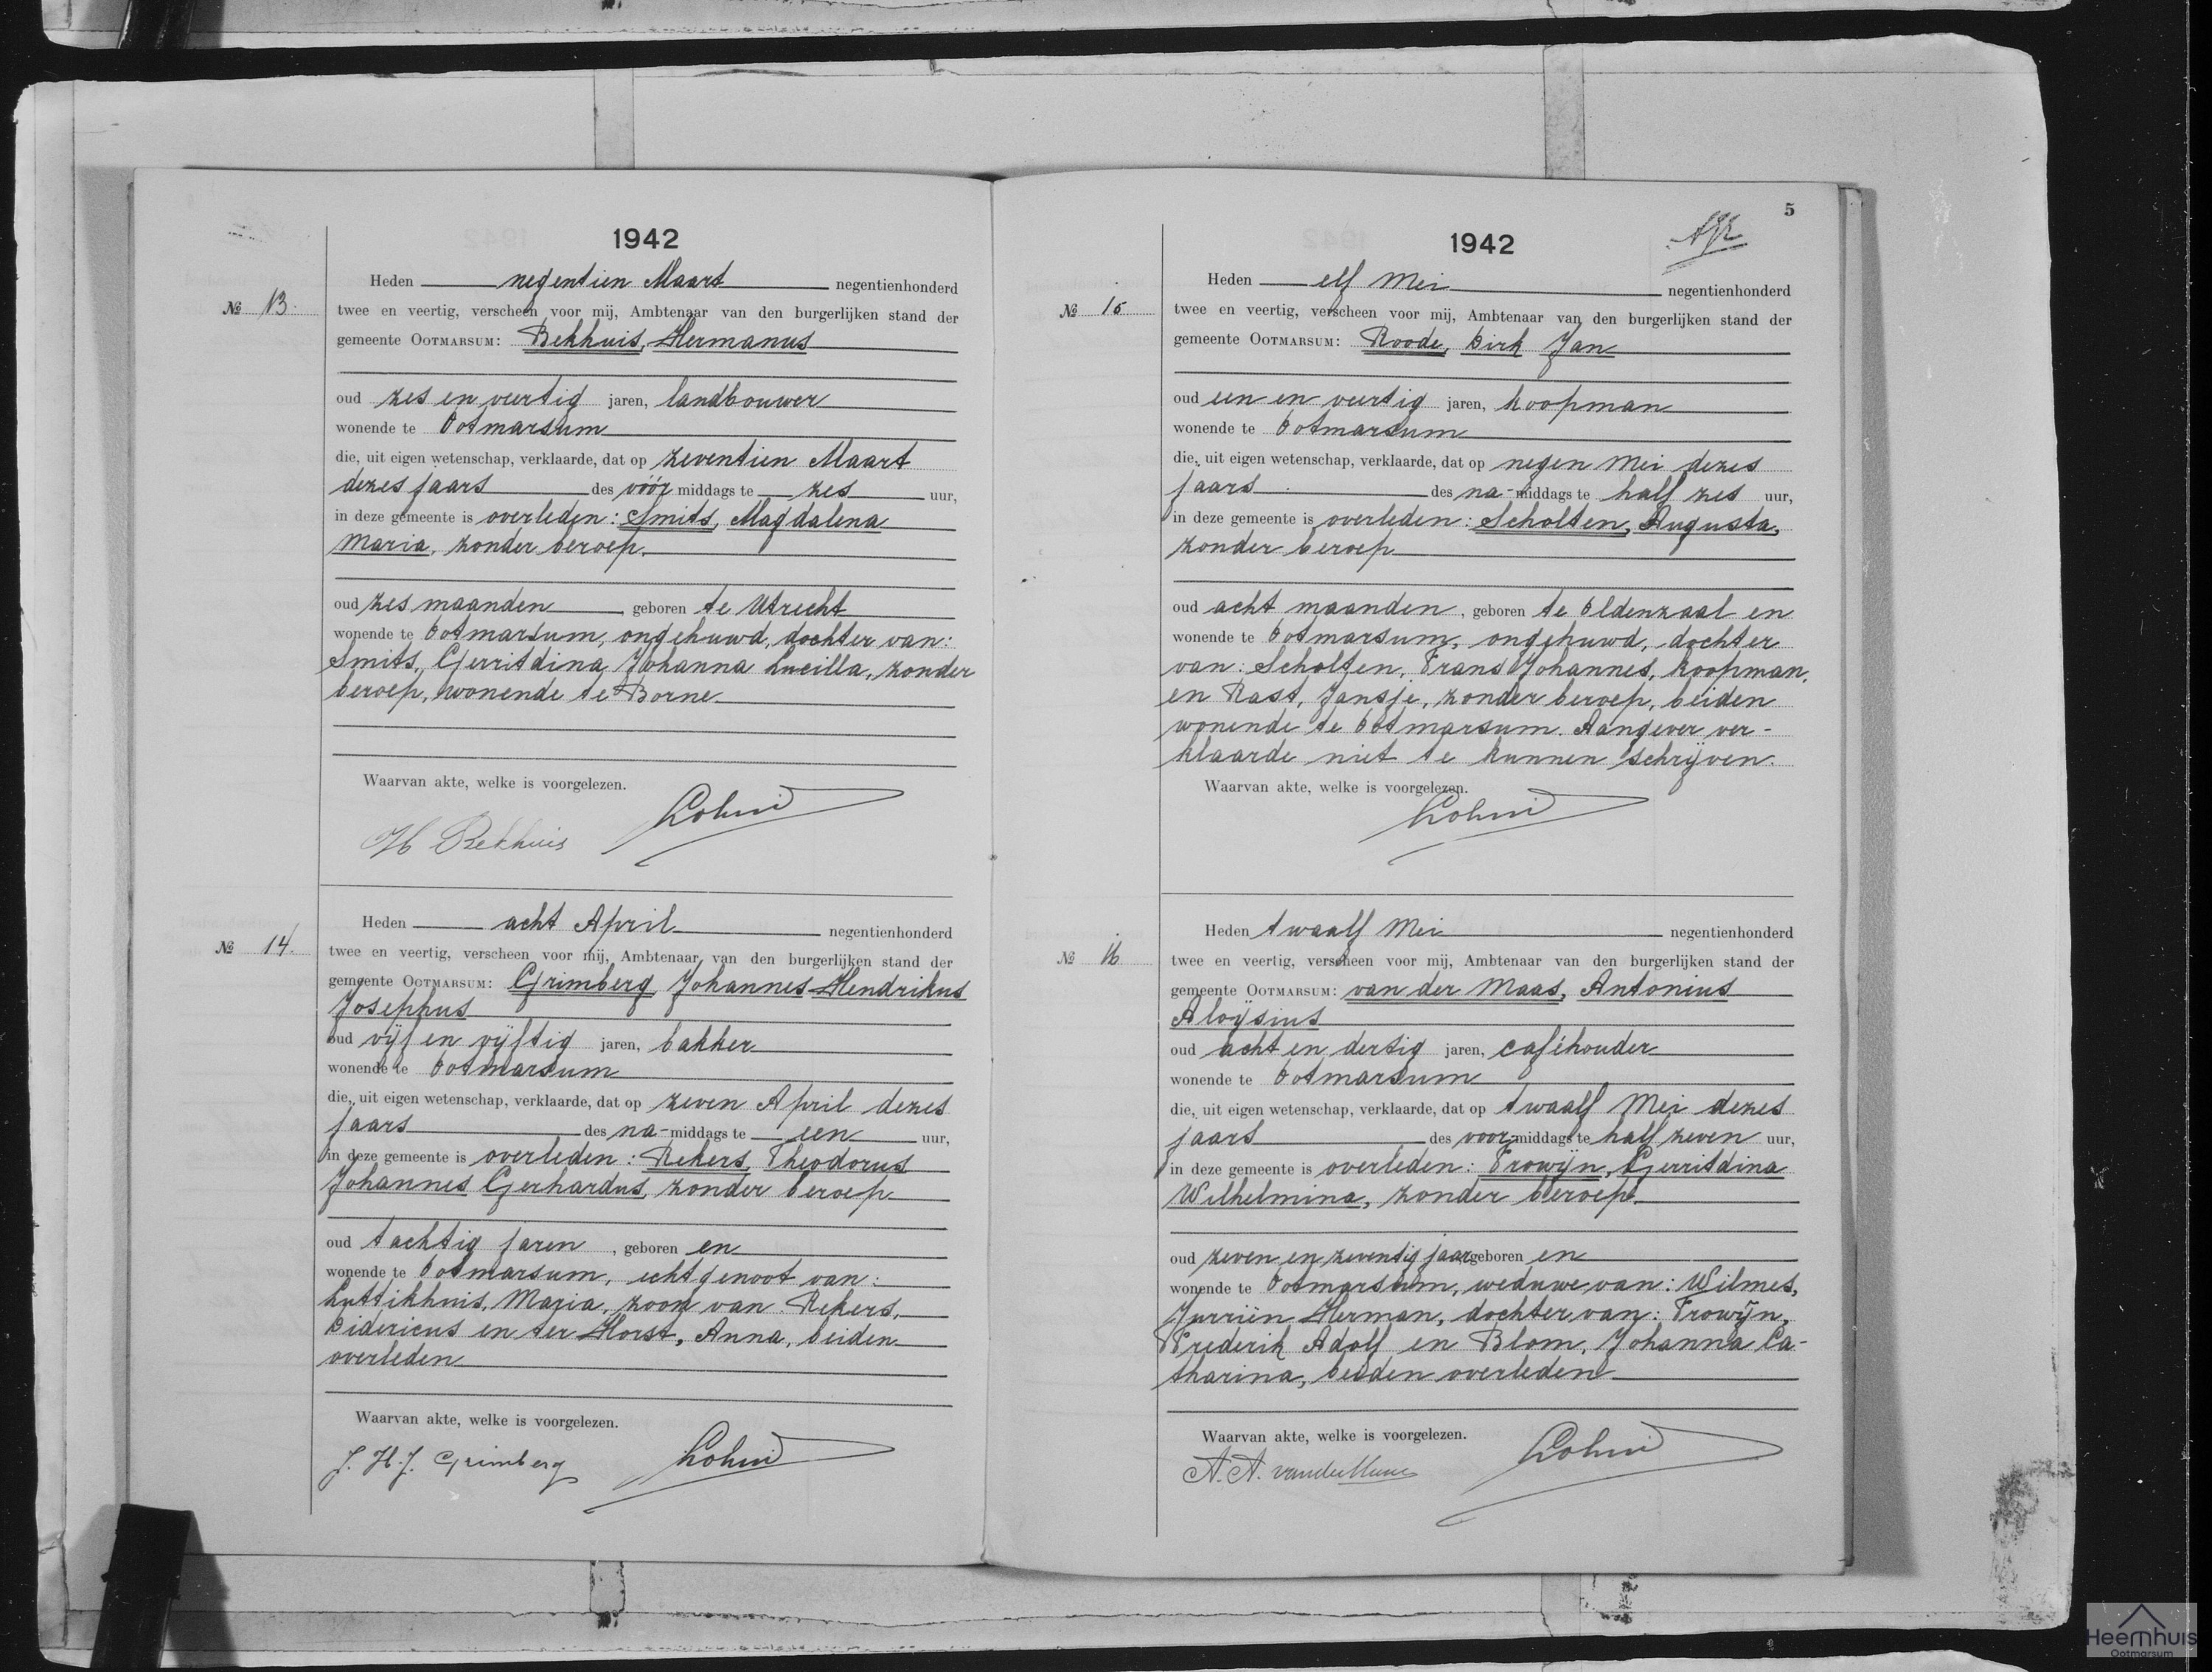 1942
Heden negentien Maart negentienhonderd
№ 13.
twee en veertig, verscheen voor mij, Ambtenaar van den burgerlijken stand der
gemeente OOTMARSUM: Bekhuis, Hermanus
oud zes en veertig jaren, landbouwer
wonende te Ootmarsum
die, uit eigen wetenschap, verklaarde, dat op zeventien Maart
dezes jaars des vóór middags te zes uur,
in deze gemeente is overleden: Smits, Magdalena
Maria, zonder beroep.
oud zes maanden geboren te Utrecht
wonende te Ootmarsum, ongehuwd, dochter van:
Smits, Gerritdina Johanna Lucilla, zonder
beroep, wonende te Borne
Waarvan akte, welke is voorgelezen.
H Bekhuis
Heden acht April negentienhonderd
№ 14.
twee en veertig, verscheen voor mij, Ambtenaar van den burgerlijken stand der
gemeente OOTMARSUM: Grimberg Johannes Hendrikus
Josephus
oud vijf en vijftig jaren, bakker
wonende te Ootmarsum
die, uit eigen wetenschap, verklaarde, dat op zeven April dezes
jaars des na-middags te een uur,
in deze gemeente is overleden: Rekers, Theodorus
Johannes Gerhardus, zonder beroep
oud tachtig jaren, geboren en
wonende te Ootmarsum, echtgenoot van:
Luttikhuis, Maria, zoon van: Rekers,
Didericus en ter Horst, Anna, beiden
overleden
Waarvan akte, welke is voorgelezen.
J. H. J. Grimberg
5
1942
Heden elf Mei negentienhonderd
№ 15
twee en veertig, verscheen voor mij, Ambtenaar van den burgerlijken stand der
gemeente OOTMARSUM: Roode, Dirk Jan
oud een en veertig jaren, koopman
wonende te Ootmarsum
die, uit eigen wetenschap, verklaarde, dat op negen Mei dezes
jaars des na-middags te half zes uur,
in deze gemeente is overleden: Scholten, Augusta,
zonder beroep
oud acht maanden, geboren te Oldenzaal en
wonende te Ootmarsum, ongehuwd, dochter
van: Scholten, Frans Johannes, koopman,
en Rast, Jansje, zonder beroep, beiden
wonende te Ootmarsum. Aangever ver-
klaarde niet te kunnen schrijven.
Waarvan akte, welke is voorgelezen.
Heden twaalf Mei negentienhonderd
№ 16
twee en veertig, verscheen voor mij, Ambtenaar van den burgerlijken stand der
gemeente OOTMARSUM: van der Maas, Antonius
Aloÿsius
oud acht en dertig jaren, caféhouder
wonende te Ootmarsum
die, uit eigen wetenschap, verklaarde, dat op twaalf Mei dezes
jaars des voor-middags te half zeven uur,
in deze gemeente is overleden: Frowijn, Gerritdina
Wilhelmina, zonder beroep.
oud zeven en zeventig jaar geboren en
wonende te Ootmarsum, weduwe van: Wilmes,
Jurriën Herman, dochter van: Frowijn,
Frederik Adolf en Blom, Johanna Ca-
tharina, beiden overleden
Waarvan akte, welke is voorgelezen.
A. A. van der Maas
Heemhuis
Ootmarsum